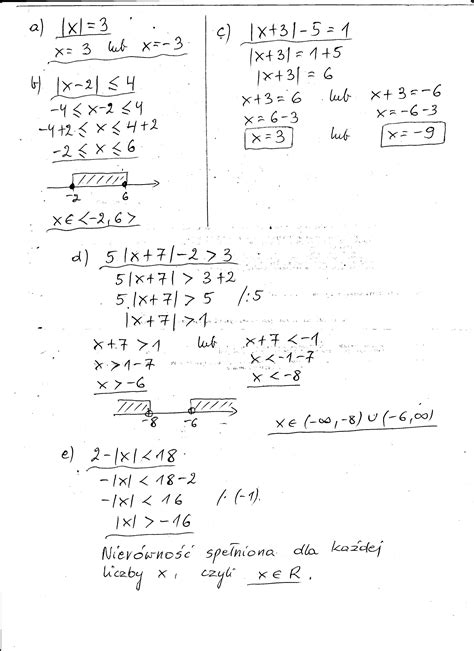 a) |x| = 3
x = 3 lub x = -3
b) |x-2| ≤ 4
-4 ≤ x-2 ≤ 4
-4+2 ≤ x ≤ 4+2
-2 ≤ x ≤ 6
-2 6
x ∈ <-2, 6>
c) |x+3| - 5 = 1
|x+3| = 1+5
|x+3| = 6
x+3 = 6 lub x+3 = -6
x = 6-3 x = -6-3
x = 3 lub x = -9
d) 5|x+7| - 2 > 3
5|x+7| > 3+2
5|x+7| > 5 /:5
|x+7| > 1
x+7 > 1 lub x+7 < -1
x > 1-7 x < -1-7
x > -6 x < -8
-8 -6
x ∈ (-∞, -8) ∪ (-6, ∞)
e) 2-|x| < 18
-|x| < 18-2
-|x| < 16 /·(-1)
|x| > -16
Nierówność spełniona dla każdej
liczby x, czyli x ∈ R.